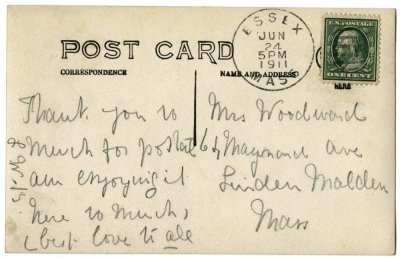 POST CARD
CORRESPONDENCE
NAME AND ADDRESS
ESSEX
JUN
24
5PM
1911
MASS
U.S. POSTAGE
ONE CENT
HERE
Thank you so
much for postal
am enjoying it
here so much,
best love to all
Mrs Woodward
Maynard Ave
Linden Malden
Mass